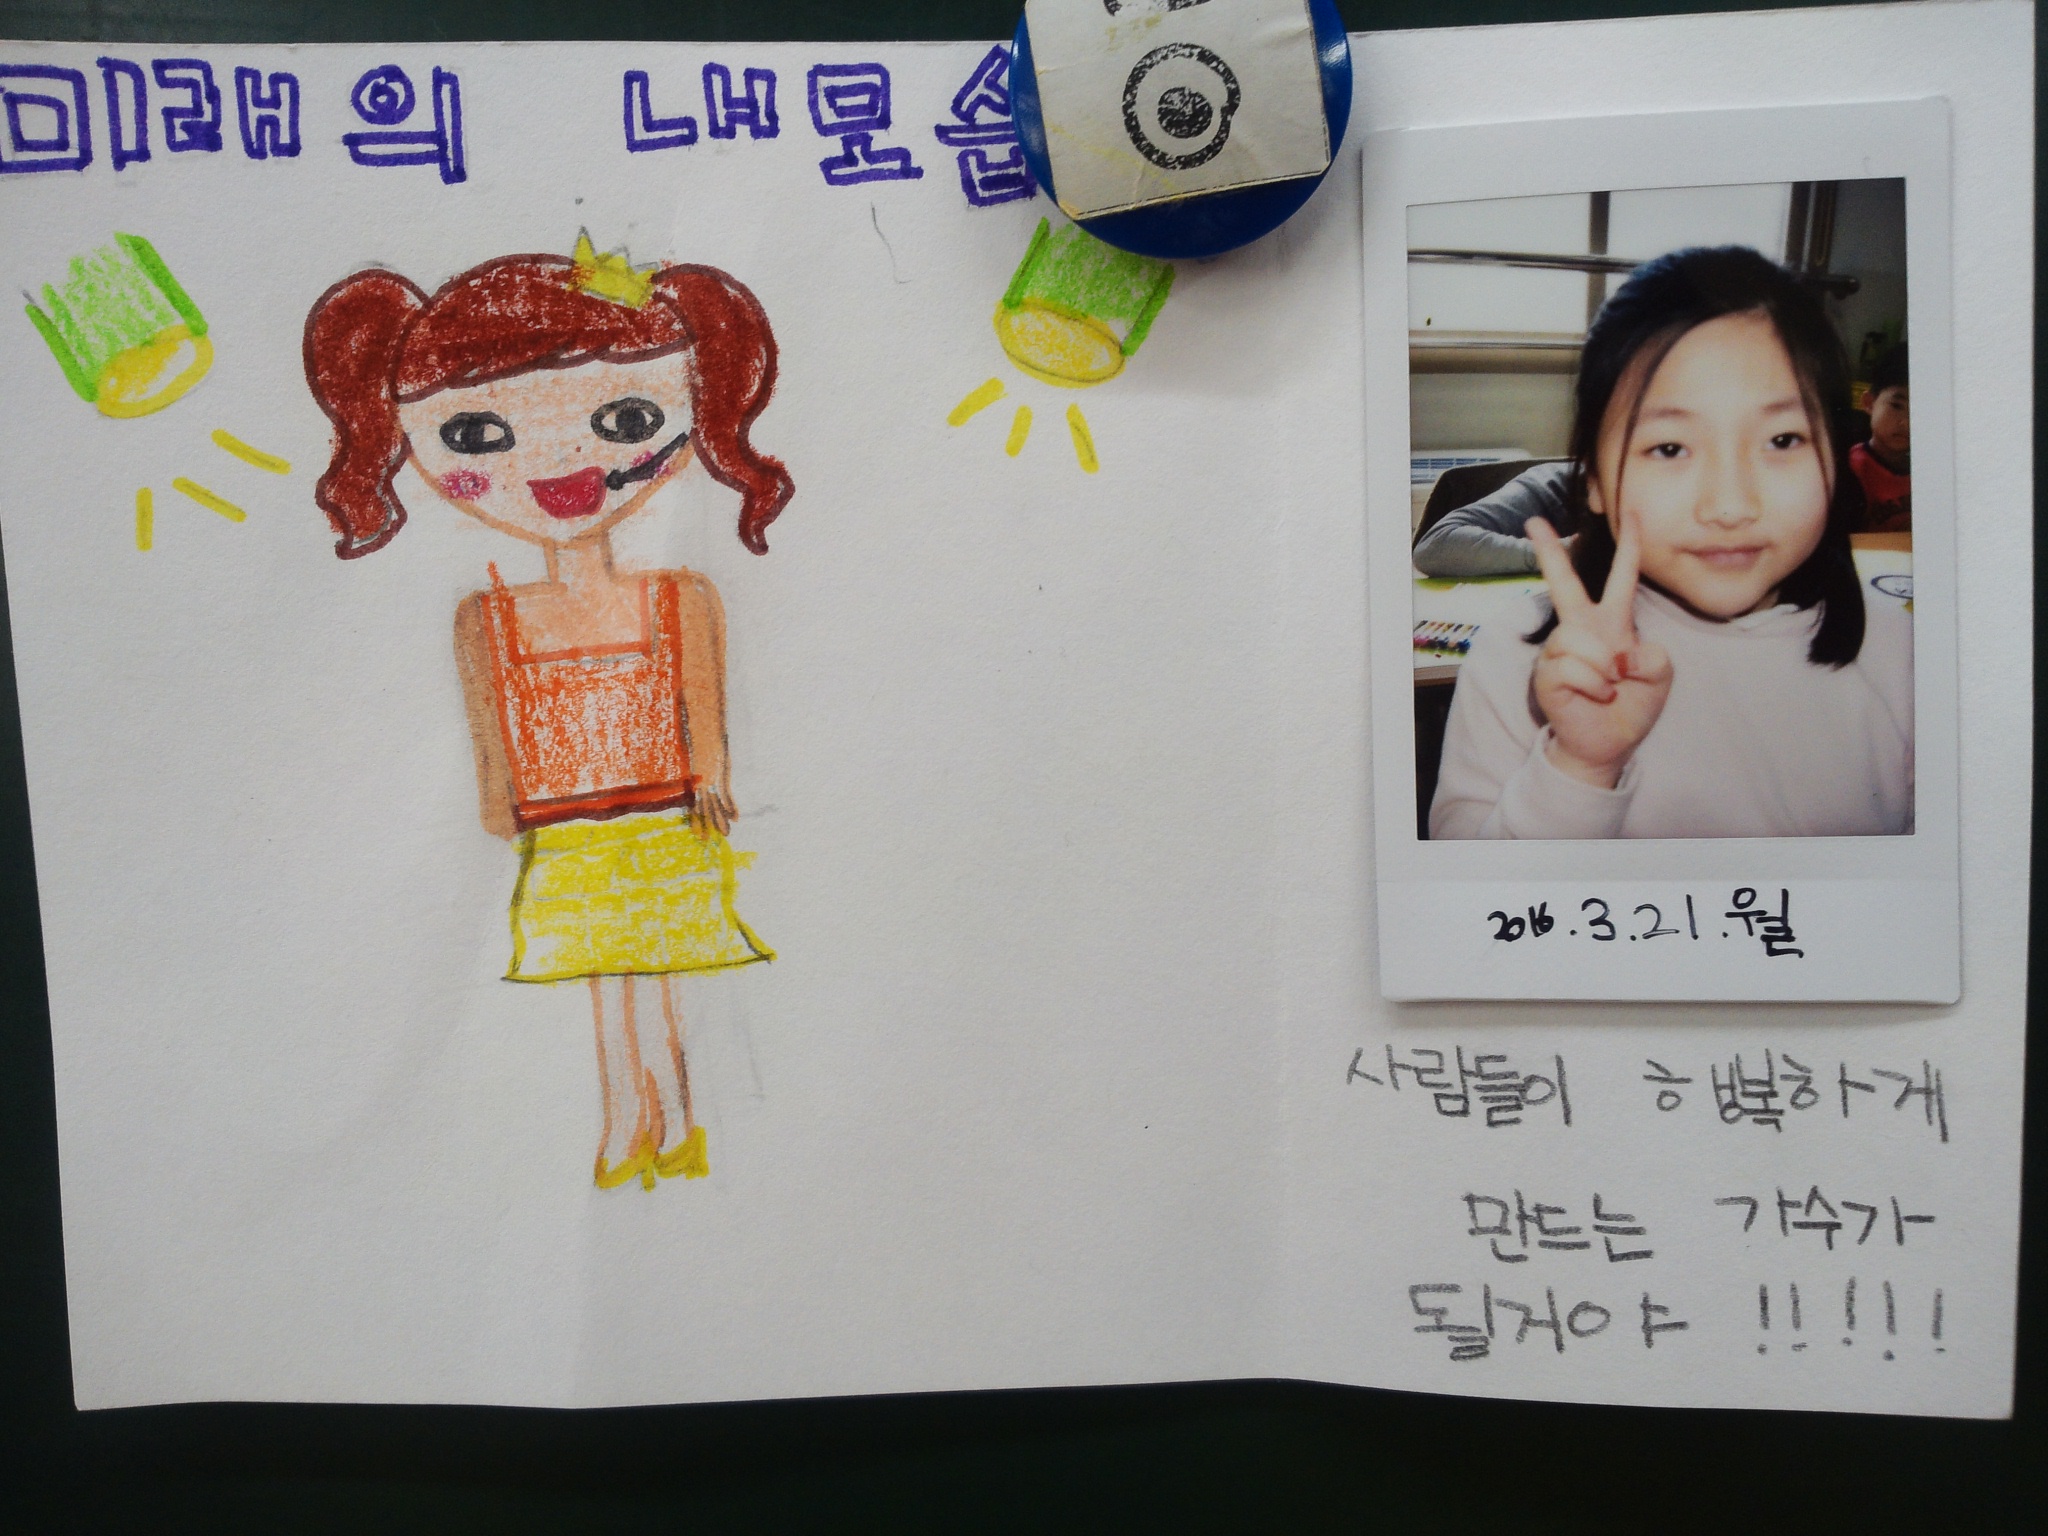 미래의 내모습
2016.3.21.월
사람들이 행복하게
만드는 가수가
될거야 !!!!!